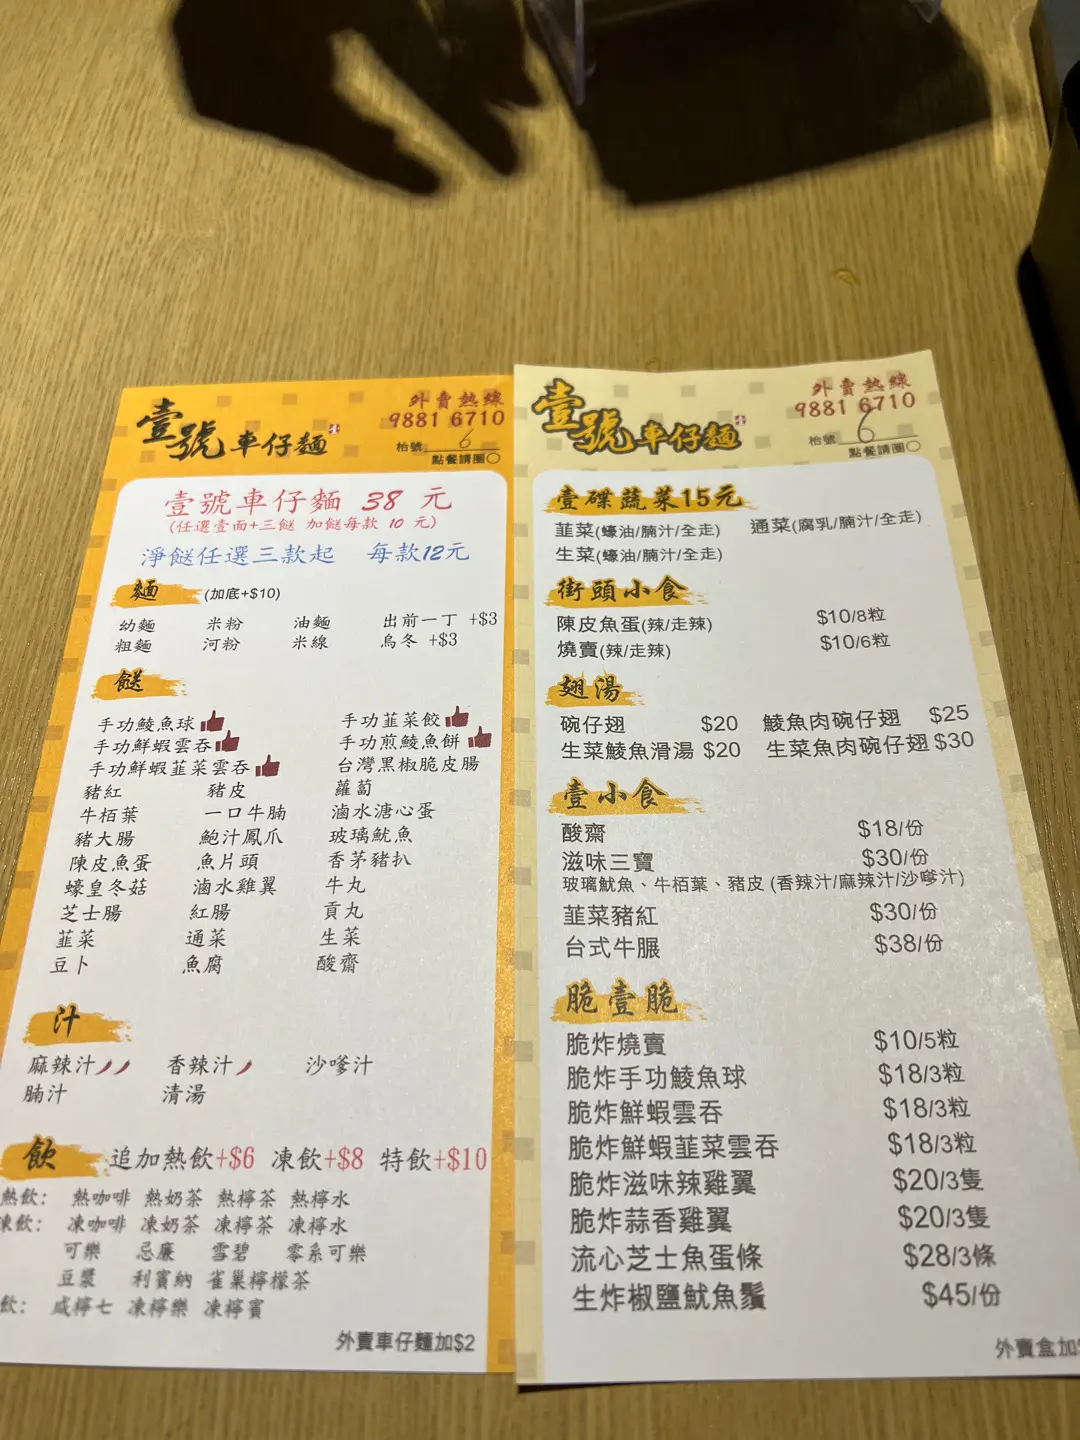 壹號車仔麵
外賣熱線
9881 6710
枱號 6
點餐請圈○
壹號車仔麵 38 元
(任選壹面+三餸 加餸每款 10 元)
淨餸任選三款起 每款12元
麵 (加底+$10)
幼麵 米粉 油麵 出前一丁 +$3
粗麵 河粉 米線 烏冬 +$3
餸
手功鯪魚球 手功韮菜餃
手功鮮蝦雲吞 手功煎鯪魚餅
手功鮮蝦韮菜雲吞 台灣黑椒脆皮腸
豬紅 豬皮 蘿蔔
牛栢葉 一口牛腩 滷水溏心蛋
豬大腸 鮑汁鳳爪 玻璃魷魚
陳皮魚蛋 魚片頭 香茅豬扒
蠔皇冬菇 滷水雞翼 牛丸
芝士腸 紅腸 貢丸
韮菜 通菜 生菜
豆卜 魚腐 酸齋
汁
麻辣汁 香辣汁 沙嗲汁
腩汁 清湯
飲 追加熱飲+$6 凍飲+$8 特飲+$10
熱飲: 熱咖啡 熱奶茶 熱檸茶 熱檸水
凍飲: 凍咖啡 凍奶茶 凍檸茶 凍檸水
可樂 忌廉 雪碧 零系可樂
豆漿 利賓納 雀巢檸檬茶
飲: 咸檸七 凍檸樂 凍檸賓
外賣車仔麵加$2
壹號車仔麵
外賣熱線
9881 6710
枱號 6
點餐請圈○
壹碟蔬菜15元
韮菜(蠔油/腩汁/全走) 通菜(腐乳/腩汁/全走)
生菜(蠔油/腩汁/全走)
街頭小食
陳皮魚蛋(辣/走辣) $10/8粒
燒賣(辣/走辣) $10/6粒
翅湯
碗仔翅 $20 鯪魚肉碗仔翅 $25
生菜鯪魚滑湯 $20 生菜魚肉碗仔翅 $30
壹小食
酸齋 $18/份
滋味三寶 $30/份
玻璃魷魚、牛栢葉、豬皮 (香辣汁/麻辣汁/沙嗲汁)
韮菜豬紅 $30/份
台式牛𦟌 $38/份
脆壹脆
脆炸燒賣 $10/5粒
脆炸手功鯪魚球 $18/3粒
脆炸鮮蝦雲吞 $18/3粒
脆炸鮮蝦韮菜雲吞 $18/3粒
脆炸滋味辣雞翼 $20/3隻
脆炸蒜香雞翼 $20/3隻
流心芝士魚蛋條 $28/3條
生炸椒鹽魷魚鬚 $45/份
外賣盒加$